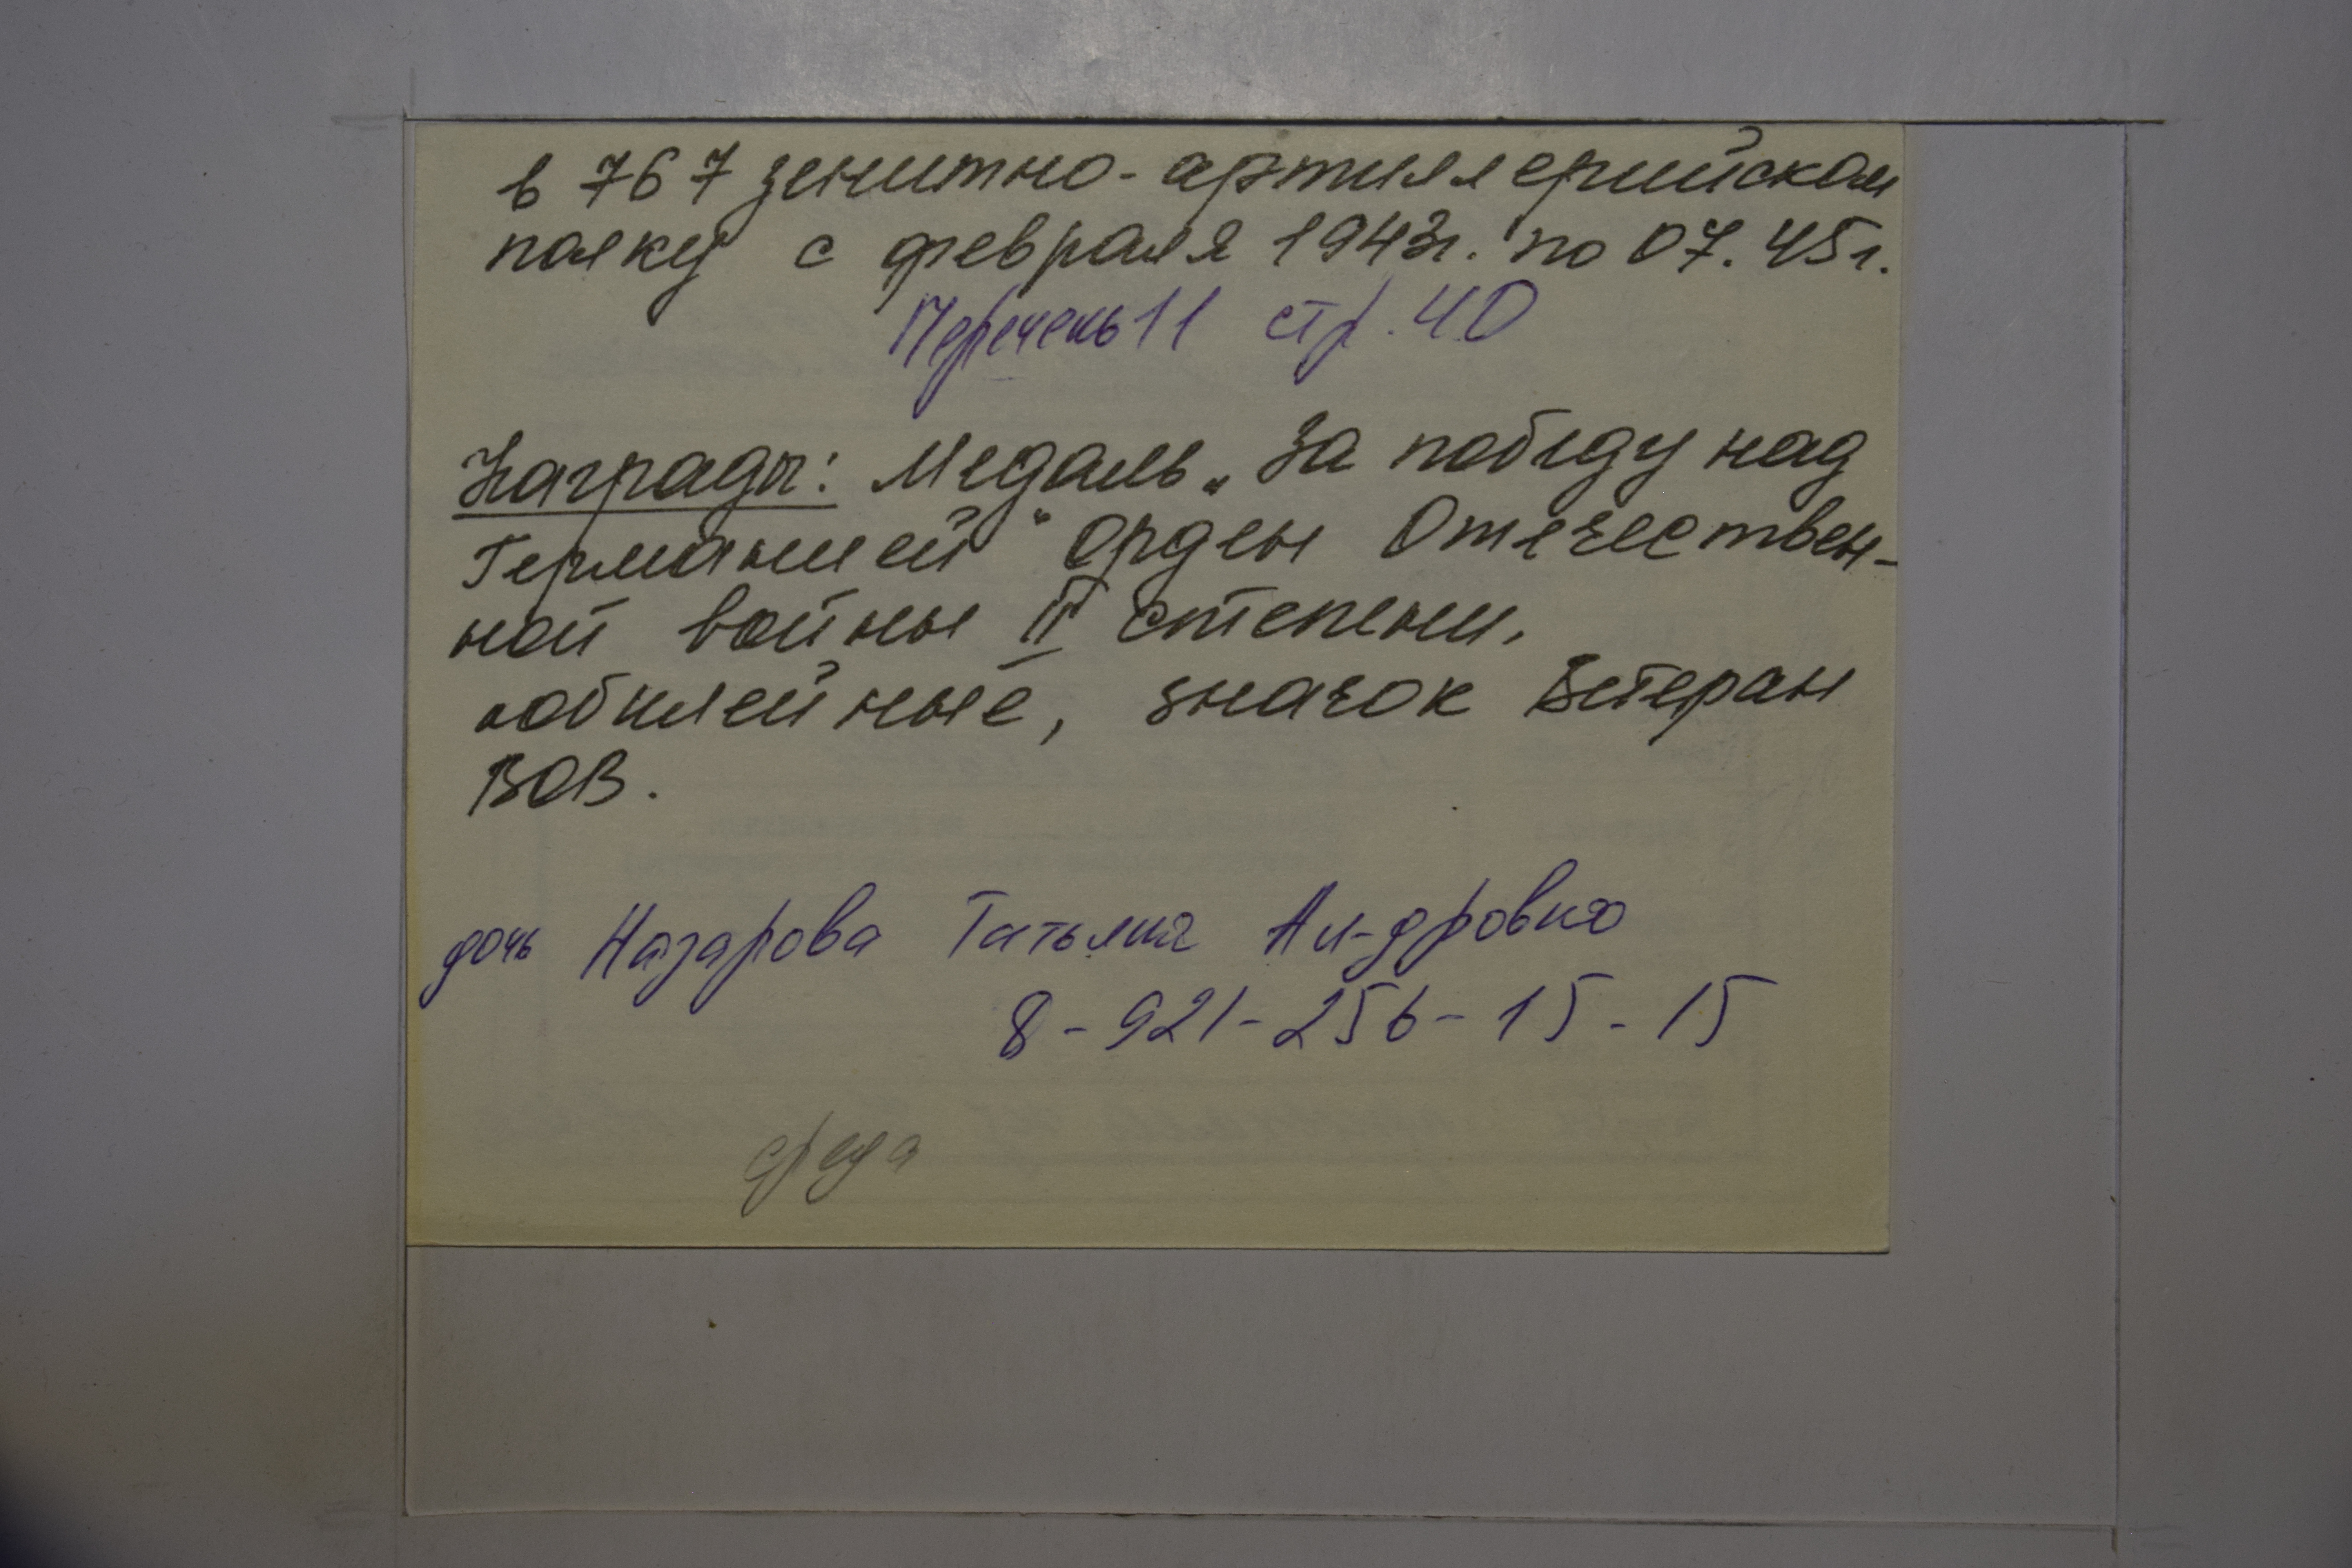 в 767 зенитно-артиллерийском
полку с февраля 1943г. по 07.45г.
Перечень 11 стр. 40
Награды: Медаль „За победу над
Германией" орден Отечествен-
ной войны II степени,
юбилейные, значок Ветеран
ВОВ.
дочь Назарова Татьяна Ал-дровна
8-921-256-15-15
среда